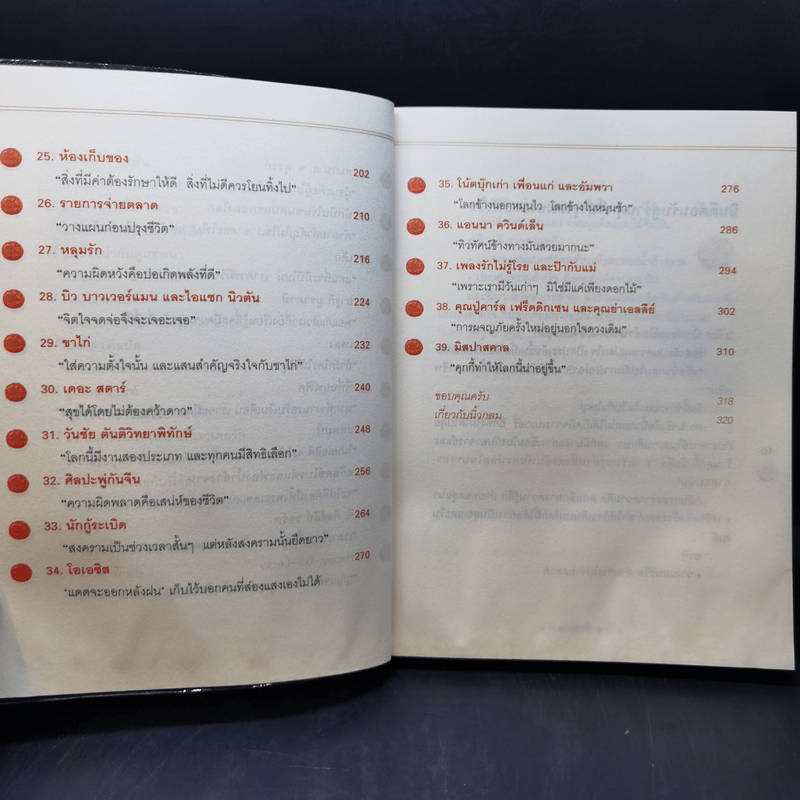 25. ห้องเก็บของ 202
“สิ่งที่มีค่าต้องรักษาให้ดี สิ่งที่ไม่ดีควรโยนทิ้งไป”
26. รายการจ่ายตลาด 210
“วางแผนก่อนปรุงชีวิต”
27. หลุมรัก 216
“ความผิดหวังคือบ่อเกิดพลังที่ดี”
28. บิว บาวเวอร์แมน และไอแซก นิวตัน 224
“จิตใจจดจ่อจึงจะเจอะเจอ”
29. ขาไก่ 232
“ใส่ความตั้งใจนั้น และแสนสำคัญจริงใจกับขาไก่”
30. เดอะ สตาร์ 240
“สุขได้โดยไม่ต้องคว้าดาว”
31. วันชัย ตันติวิทยาพิทักษ์ 248
“โลกนี้มีงานสองประเภท และทุกคนมีสิทธิเลือก”
32. ศิลปะพู่กันจีน 256
“ความผิดพลาดคือเสน่ห์ของชีวิต”
33. นักกู้ระเบิด 264
“สงครามเป็นช่วงเวลาสั้นๆ แต่หลังสงครามนั้นยืดยาว”
34. โอเอซิส 270
‘แดดจะออกหลังฝน’ เก็บไว้บอกคนที่ส่องแสงเองไม่ได้
35. โน้ตบุ๊กเก่า เพื่อนแก่ และอัมพวา 276
“โลกข้างนอกหมุนไว โลกข้างในหมุนช้า”
36. แอนนา ควินด์เล็น 286
“ทิวทัศน์ข้างทางมันสวยมากนะ”
37. เพลงรักไม่รู้โรย และป๊ากับแม่ 294
“เพราะเรามีวันเก่าๆ มิใช่มีแค่เพียงดอกไม้”
38. คุณปู่คาร์ล เฟร็ดดิกเซน และคุณย่าเอลลีย์ 302
“การผจญภัยครั้งใหม่อยู่นอกใจดวงเดิม”
39. มิสปาสคาล 310
“คุกกี้ทำให้โลกนี้น่าอยู่ขึ้น”
ขอบคุณครับ 318
เกี่ยวกับนิ้วกลม 320